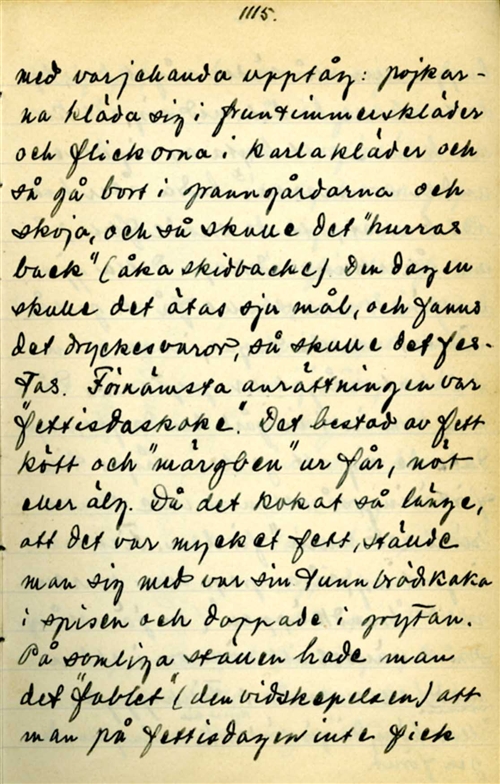 1115.
med varjehanda upptåg: pojkar-
na kläda sig i fruntimmerskläder
och flickorna i karlakläder och
så gå bort i granngårdarna och
skoja, och så skulle det "hurras
back" (åka skidbacke) Den dagen
skulle det ätas sju mål, och fanns
det dryckesvaror, så skulle det fes-
tas. Förnämsta anrättningen var
"fettisdaskoke". Det bestod av fett
kött och "märgben" ur får, nöt
eller älg. Då det kokat så länge,
att det var mycket fett, ställde
man sig med var sin tunnbrödkaka
i spisen och doppade i grytan.
På somliga ställen hade man
det "fablet" (den vidskepelsen) att
man på fettisdagen inte fick